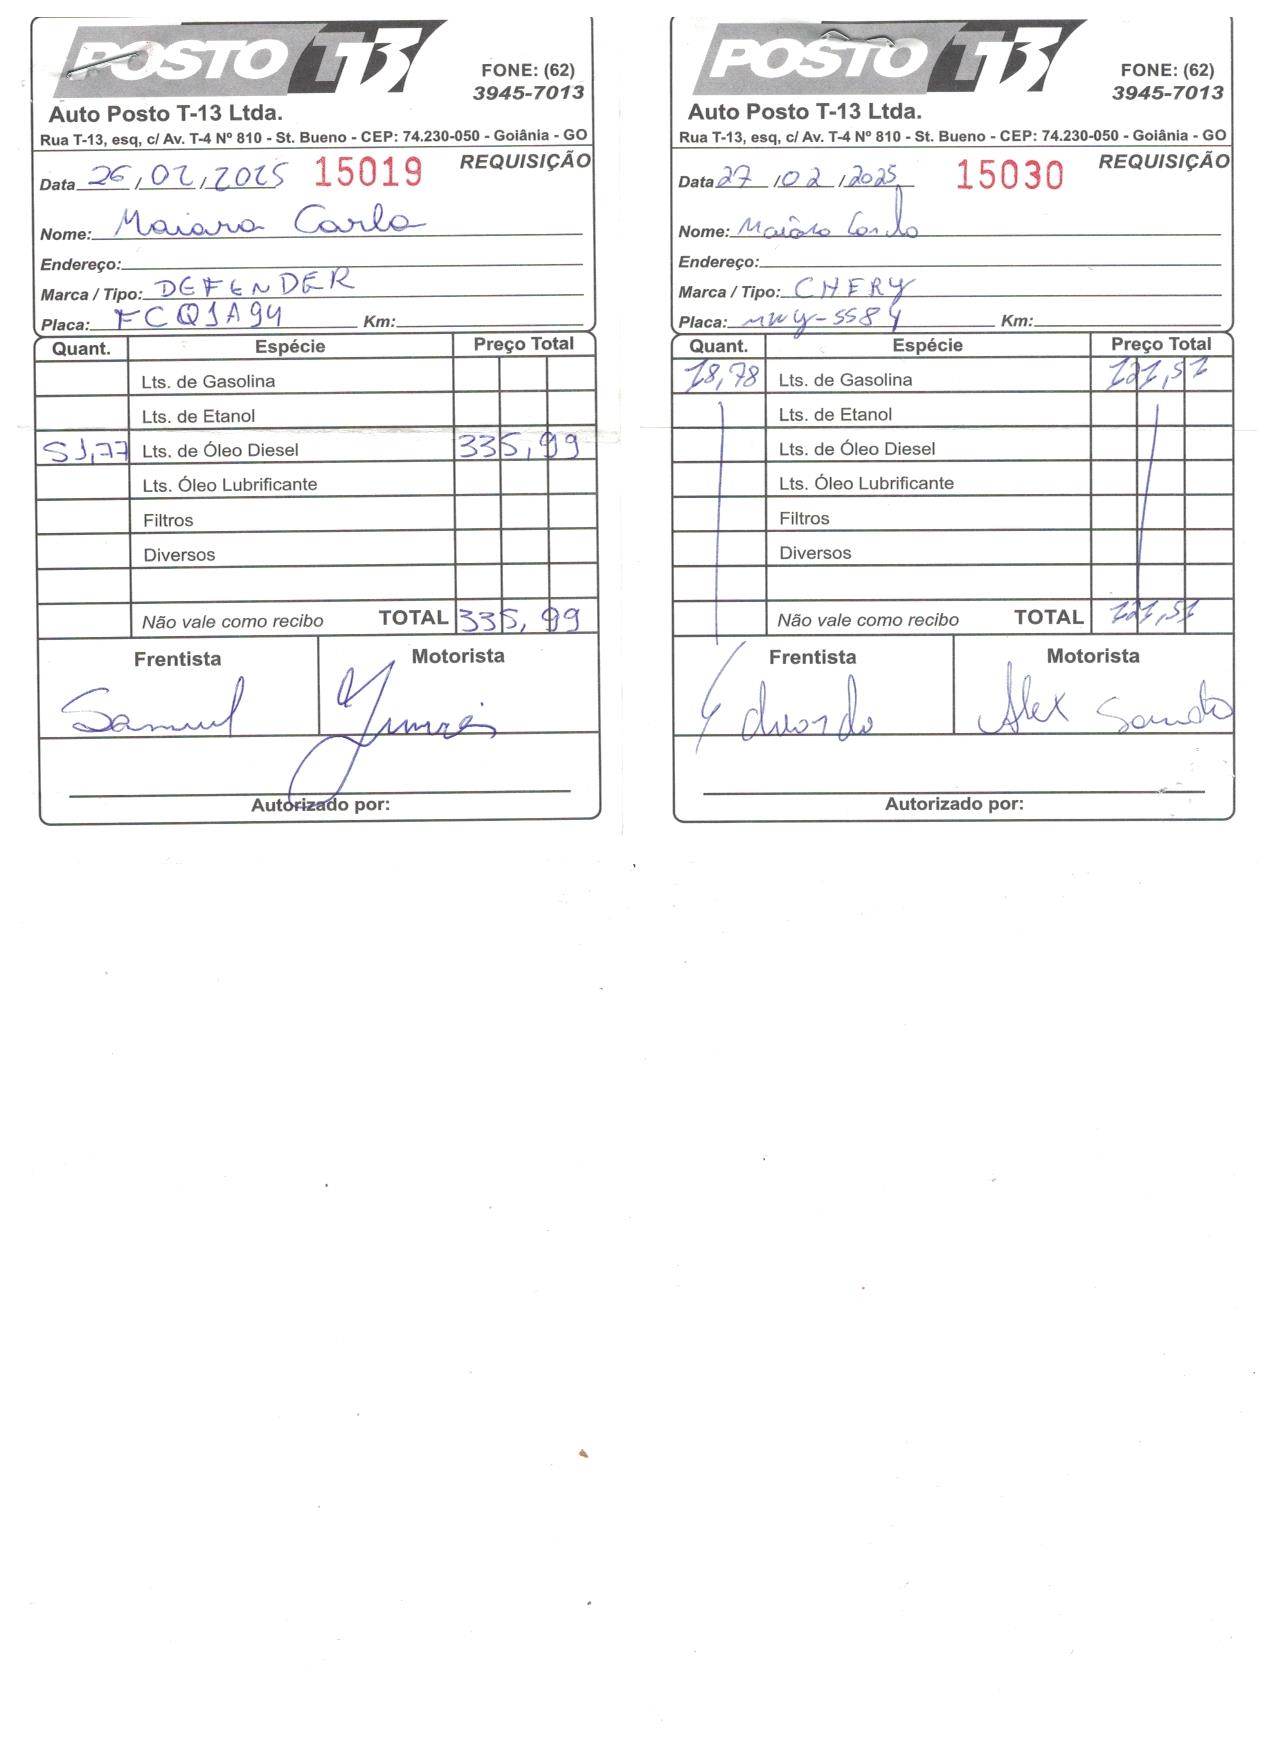 POSTO T13
FONE: (62)
3945-7013
Auto Posto T-13 Ltda.
Rua T-13, esq, c/ Av. T-4 Nº 810 - St. Bueno - CEP: 74.230-050 - Goiânia - GO
REQUISIÇÃO
Data 26/02/2025 15019
Nome: Maiara Carla
Endereço:
Marca / Tipo: DEFENDER
Placa: FCQ1A94 Km:
Quant. Espécie Preço Total
Lts. de Gasolina
Lts. de Etanol
51,77 Lts. de Óleo Diesel 335,99
Lts. Óleo Lubrificante
Filtros
Diversos
Não vale como recibo TOTAL 335,99
Frentista Motorista
Samuel
Autorizado por:
POSTO T13
FONE: (62)
3945-7013
Auto Posto T-13 Ltda.
Rua T-13, esq, c/ Av. T-4 Nº 810 - St. Bueno - CEP: 74.230-050 - Goiânia - GO
REQUISIÇÃO
Data 27/02/2025 15030
Nome: Maiara Carla
Endereço:
Marca / Tipo: CHERY
Placa: Km:
Quant. Espécie Preço Total
18,78 Lts. de Gasolina 121,51
Lts. de Etanol
Lts. de Óleo Diesel
Lts. Óleo Lubrificante
Filtros
Diversos
Não vale como recibo TOTAL 121,51
Frentista Motorista
Eduardo Alex
Autorizado por: